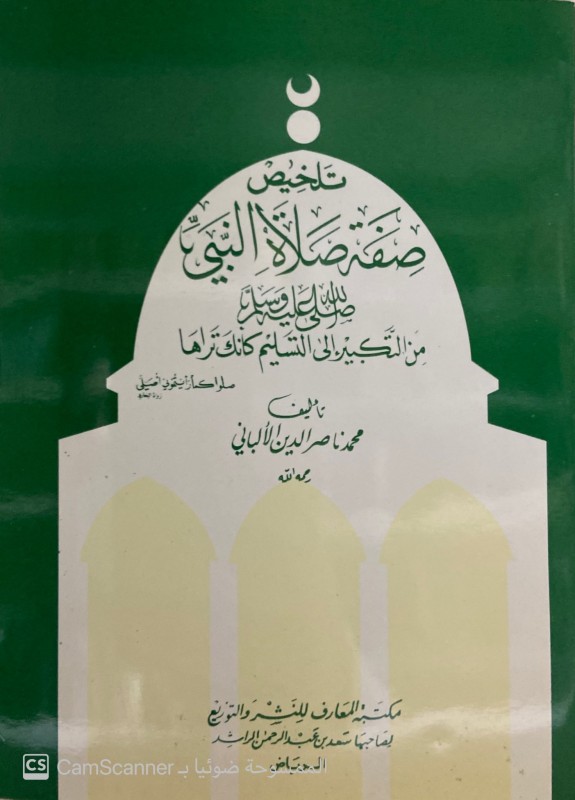 تلخيص
صفة صلاة النبي
صلى الله عليه وسلم
من التكبير إلى التسليم كأنك تراها
صلوا كما رأيتموني أصلي
رواه البخاري
تأليف
محمد ناصر الدين الألباني
رحمه الله
مكتبة المعارف للنشر والتوزيع
لصاحبها سعد بن عبد الرحمن الراشد
الرياض
CS CamScanner الممسوحة ضوئيا بـ